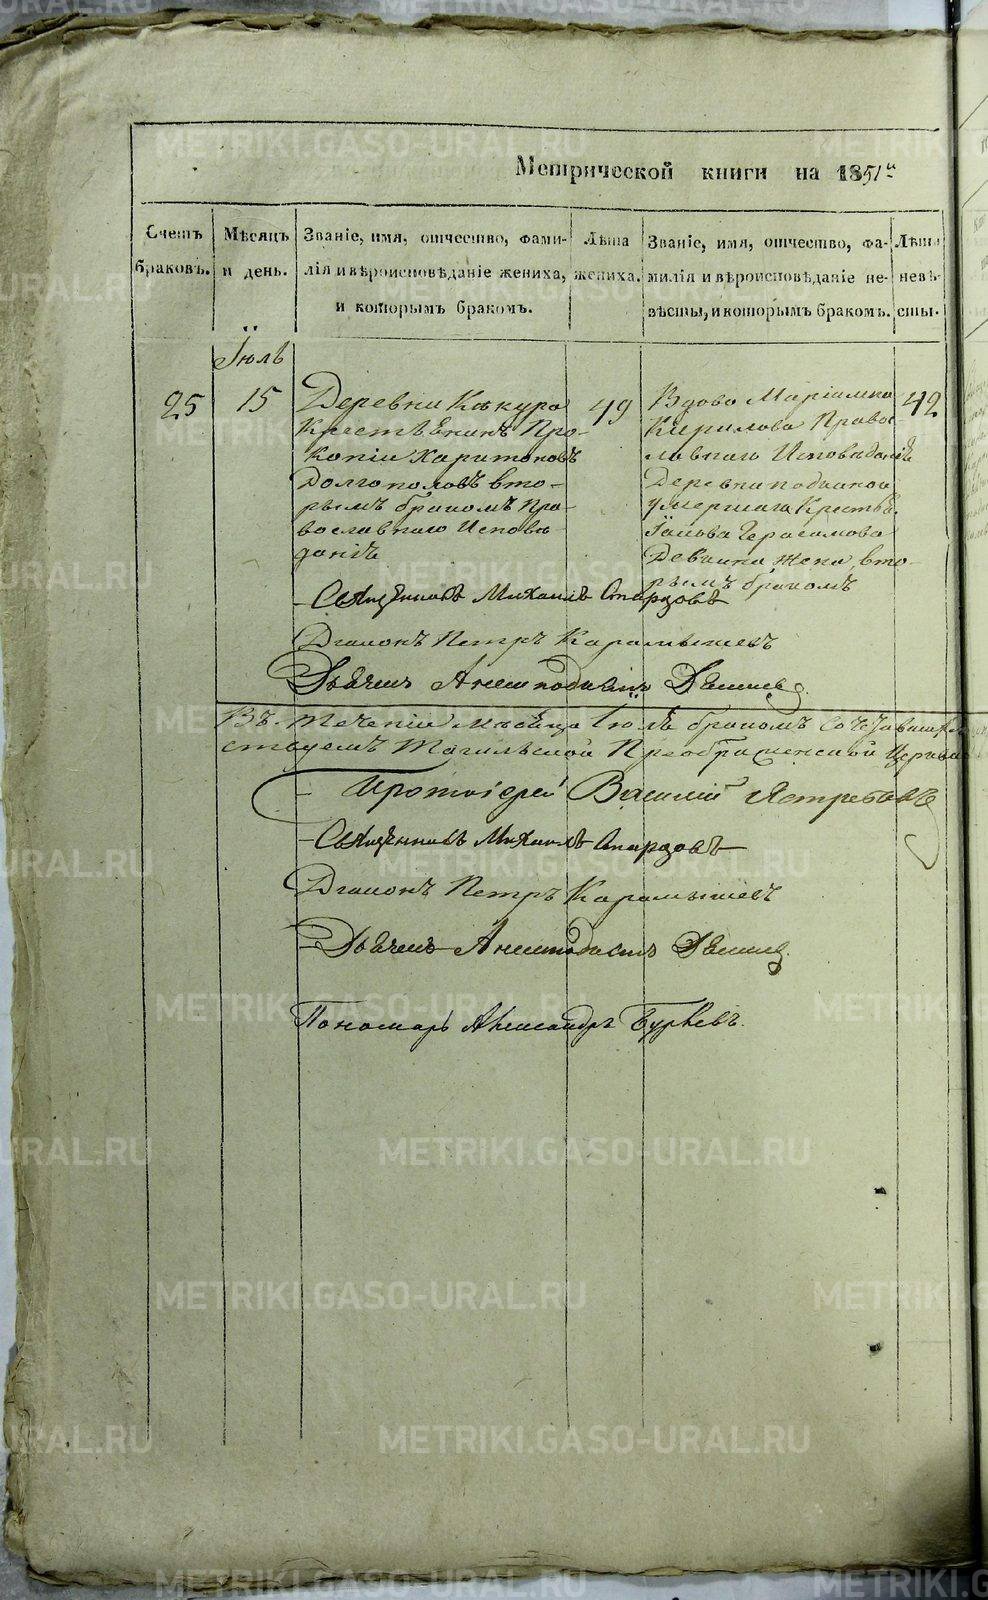 Метрической книги на 1851й
Счетъ браковъ.
Мѣсяцъ и день.
Званіе, имя, отчество, фами-
лія и вѣроисповѣданіе жениха,
и которымъ бракомъ.
Лѣта
жениха.
Званіе, имя, отчество, фа-
милія и вѣроисповѣданіе не-
вѣсты, и которымъ бракомъ.
Лѣта
невѣ-
сты.
Іюль
25
15
Деревни Кѣкура
Крестьѣнинъ Про-
копіи Харитоновъ
Долгополовъ вто-
рымъ бракомъ Пра-
вославнаго Исповѣ
даніѣ
49
Вдова Маріамна
Кирилова Право-
славнаго Исповѣданіѣ
Деревни
умершаго Крестьѣ.
Герасимова
жена вто-
рымъ бракомъ
42
Свѧщѣнникъ Михаилъ
Діаконъ Петръ Карамышевъ
Дьѧчекъ
Въ течени мѣсѧца Іюлѧ бракомъ сочетавши
Тагильской Преображенской Церкви
Протоіерей Василий Ястребовъ
Свѧщѣнникъ Михаилъ
Діаконъ Петръ Карамышевъ
Дьѧчекъ
Пономарь Александръ
METRIKI.GASO-URAL.RU